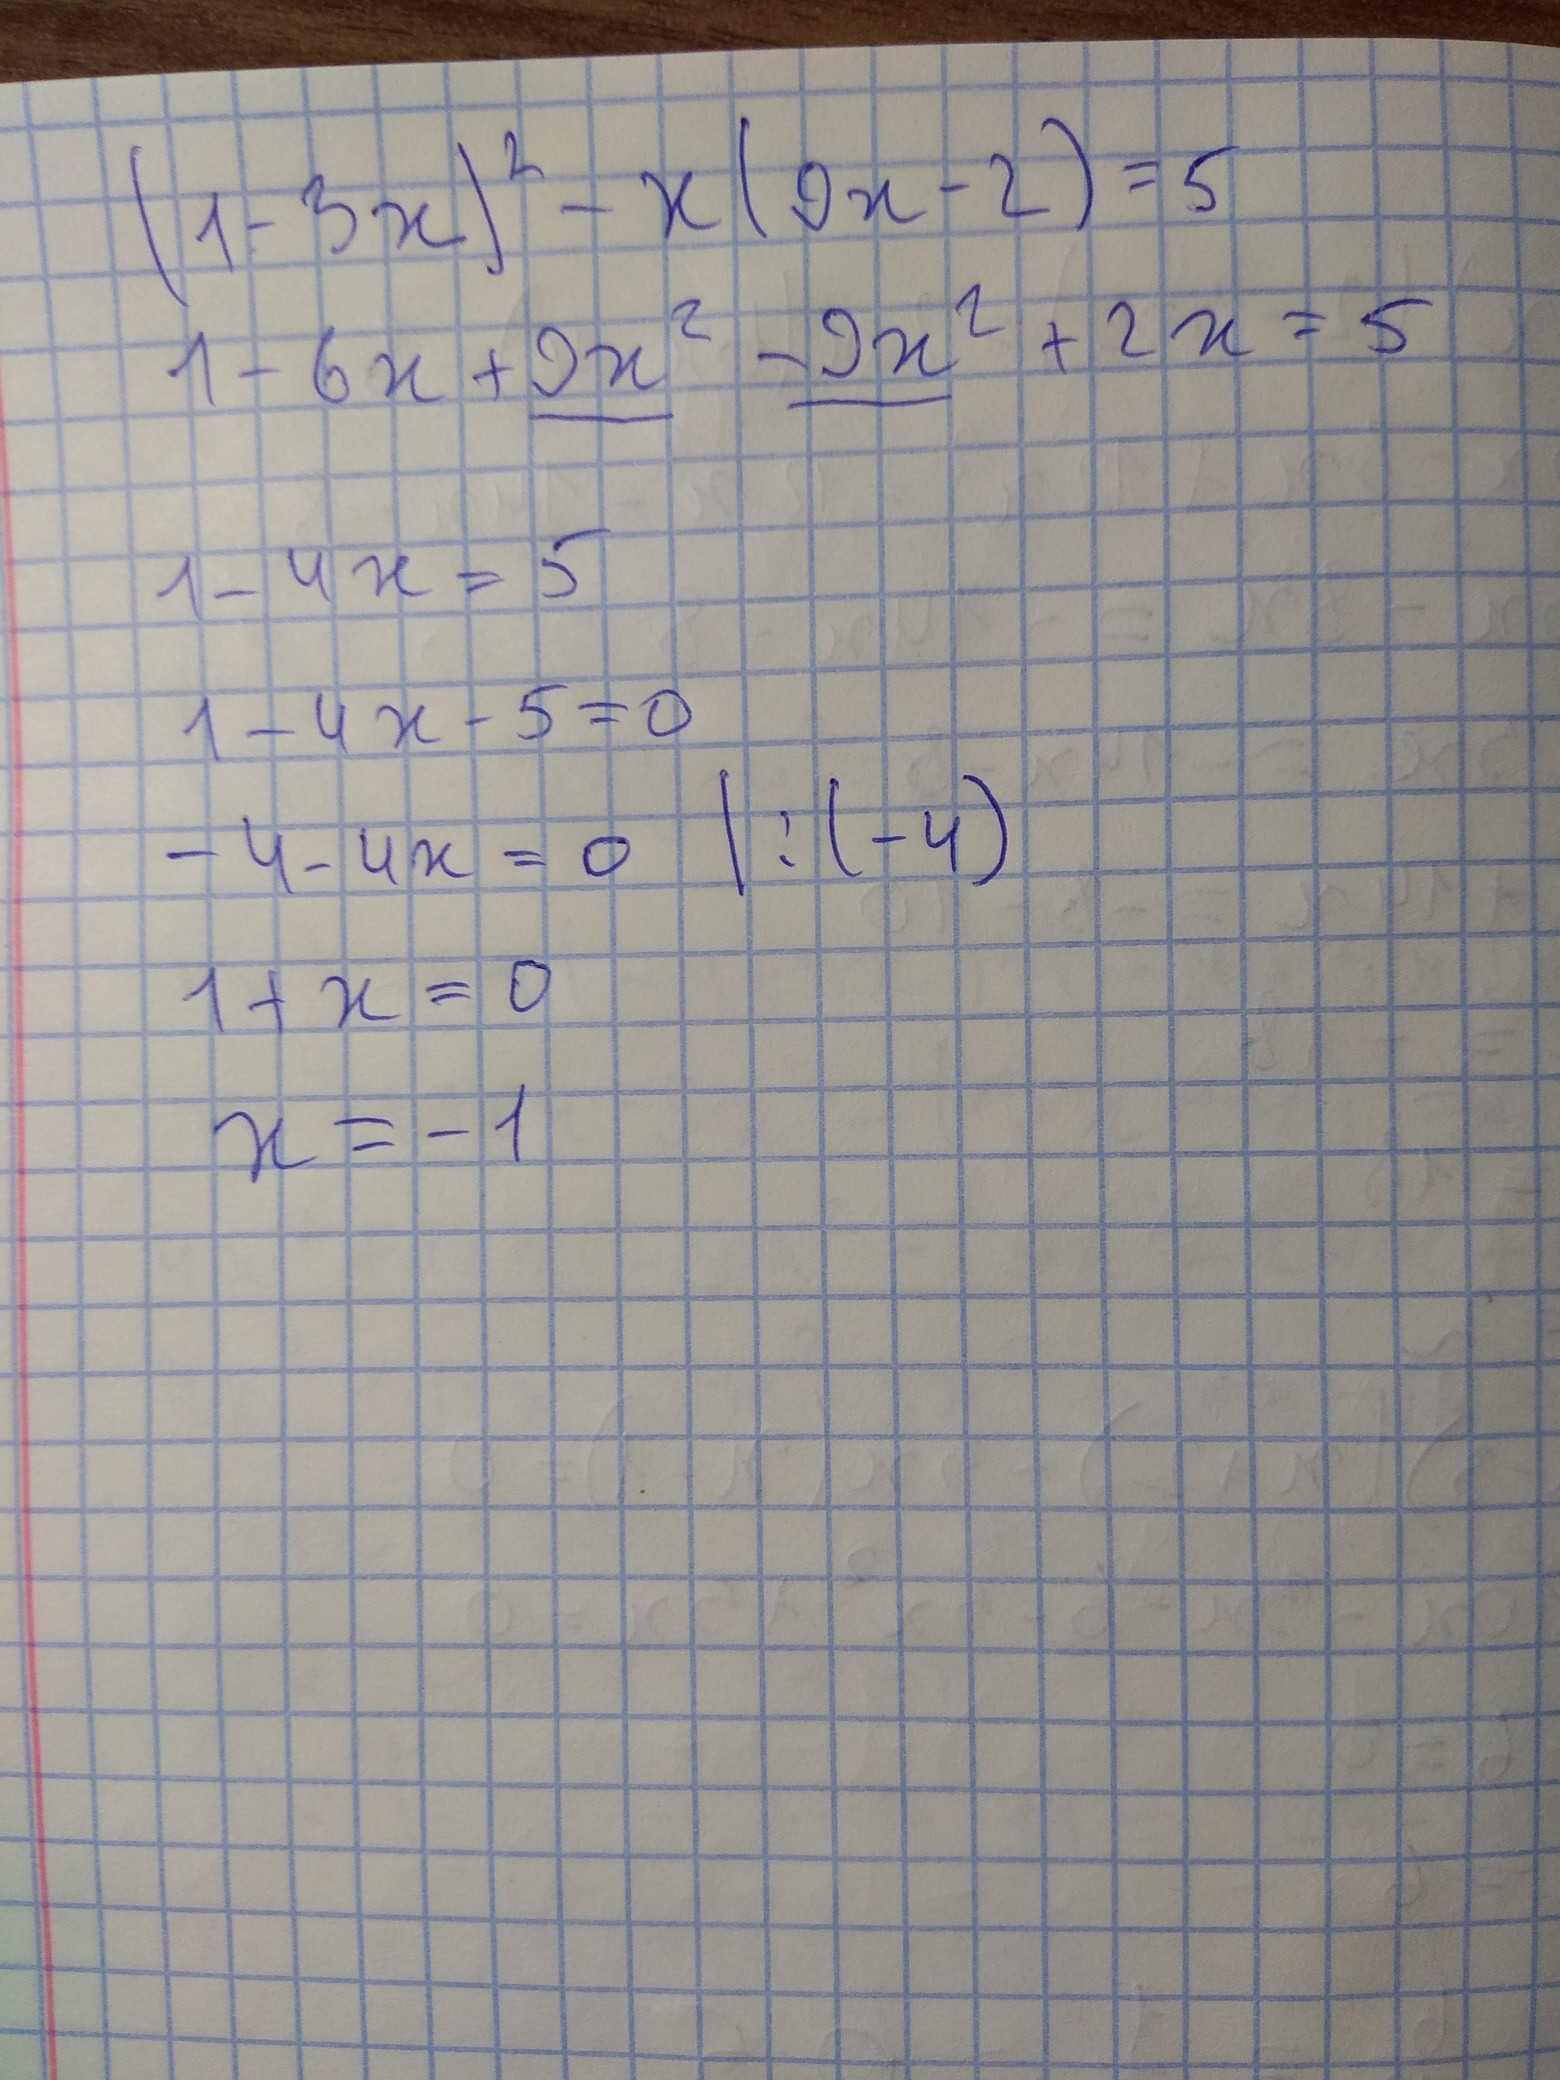 (1-3x)² - x(9x-2)=5
1-6x+9x² -9x² +2x=5
1-4x=5
1-4x-5=0
-4-4x=0 |:(-4)
1+x=0
x=-1